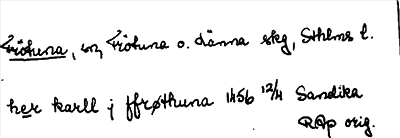 Frötuna, sn, Frötuna o. Länna skg, Sthlms l.
her karll j ffrøthuna 1456 12/4 Sandika
RAp orig.